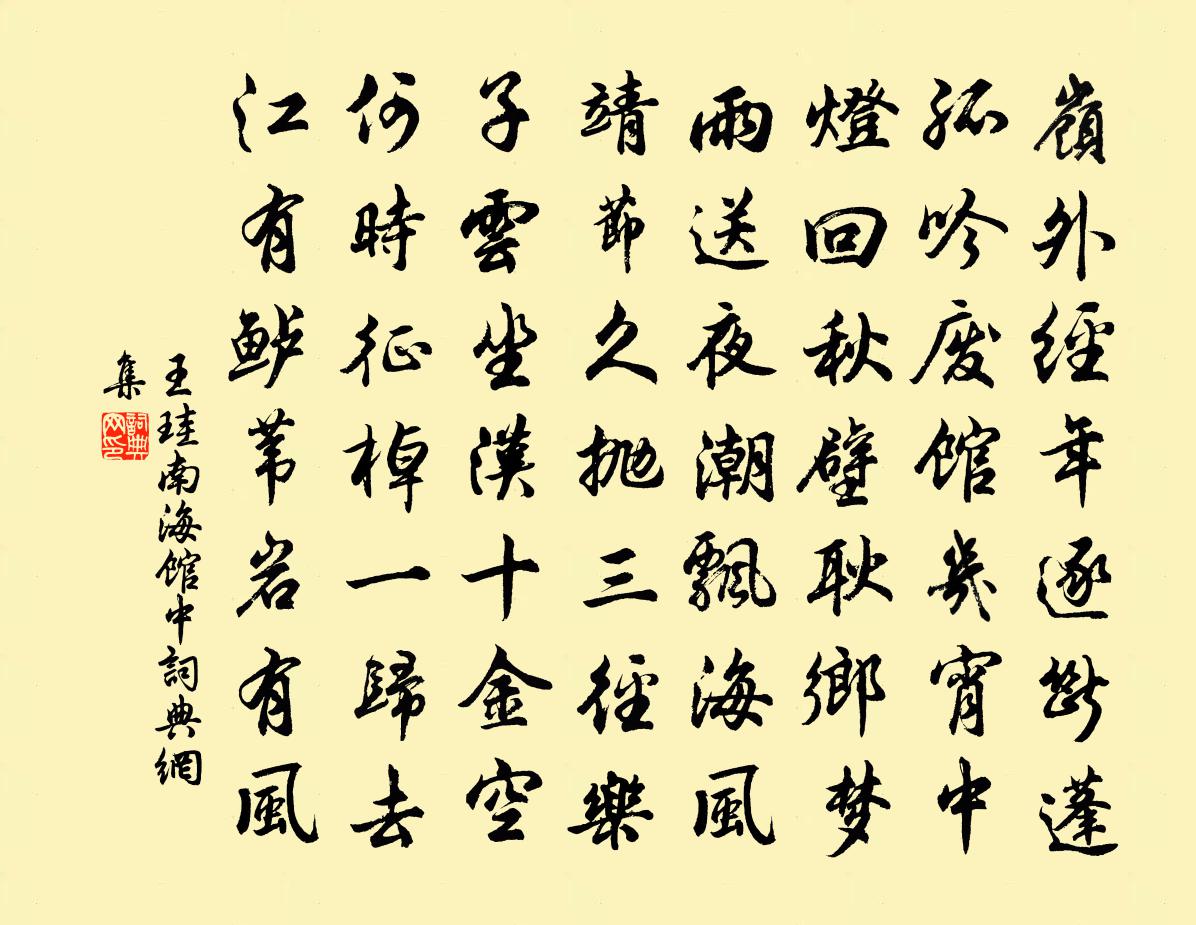 嶺外經年逐斷蓬
孤吟废館幾宵中
燈回秋壁耿鄉梦
雨送夜潮飄海風
靖節久抛三徑樂
子雲坐漢十金空
何時征棹一歸去
江有鲈苇岩有風
王珪南海館中詞典網
集
詞典
网印